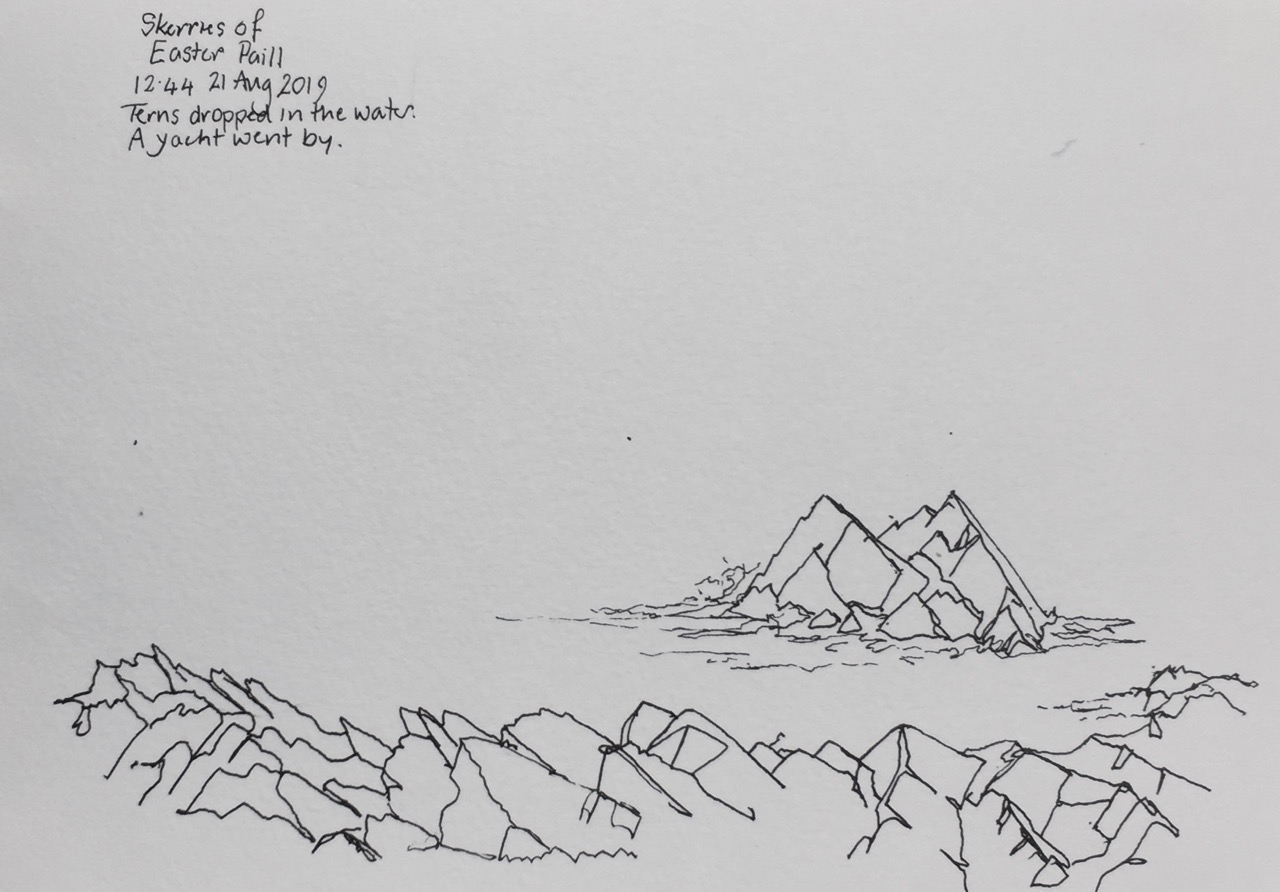 Skerries of
Easter Paill
12.44 21 Aug 2019
Terns dropped in the water.
A yacht went by.